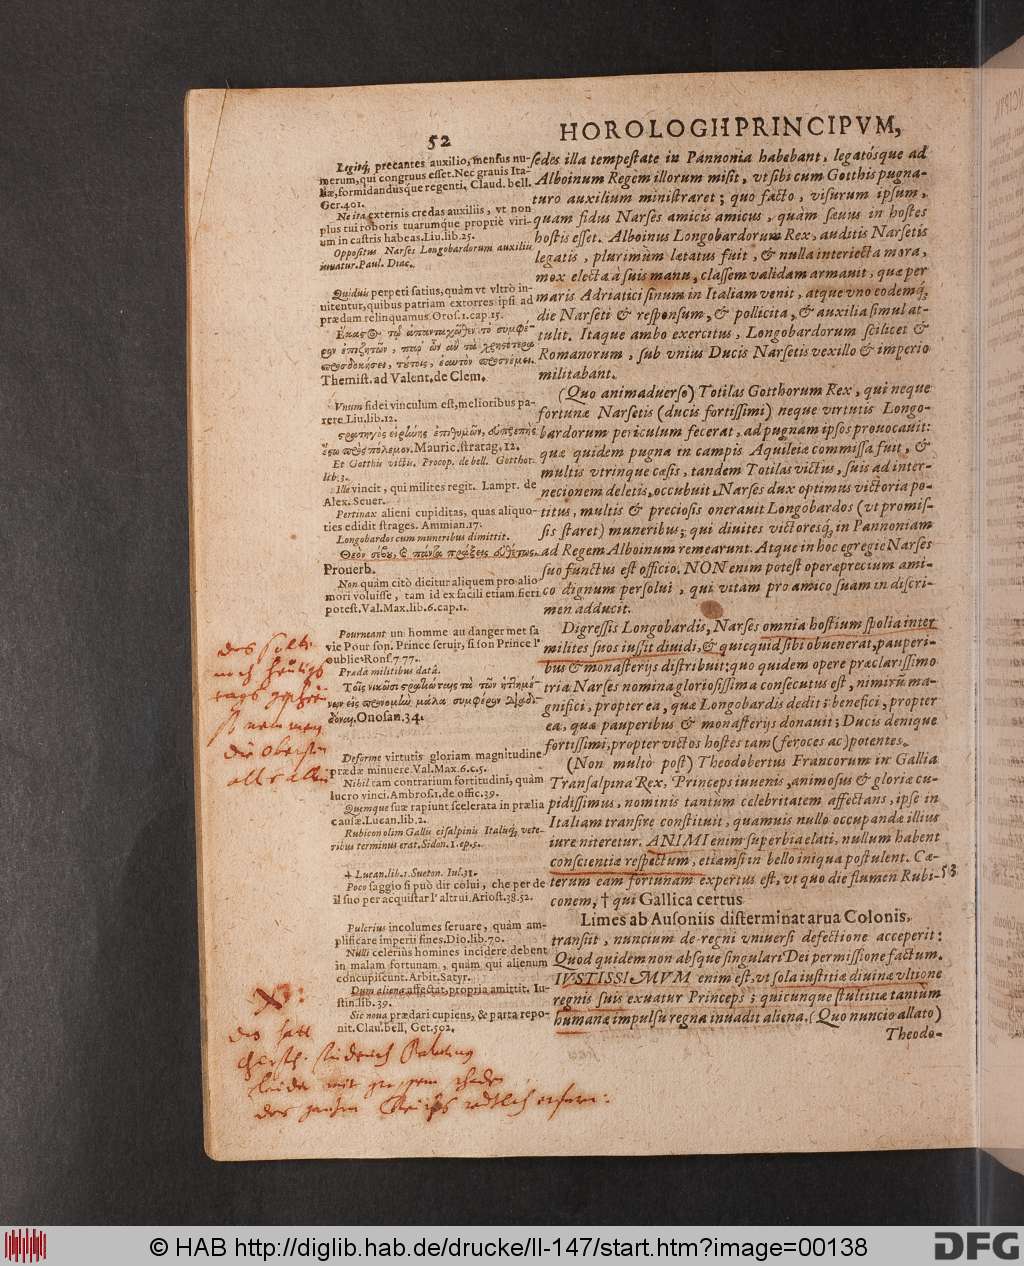 52
HOROLOGII PRINCIPVM,
Legitq́; precantes auxilio, mensus nu-
merum, qui congruus esset. Nec grauis Ita-
liæ, formidandusque regenti. Claud. bell.
Get. 401.
Ne ita externis credas auxiliis, vt non
plus tui roboris tuarumque propriè viri-
um in castris habeas. Liu. lib. 25.
Oppositus Narses Longobardorum auxiliis
iuuatur. Paul. Diac.
Quiduis perpeti satius, quàm vt vltrò in-
uitentur, quibus patriam extorres ipsi ad
prædam relinquamus. Oros. 1. cap. 15.
Themist. ad Valent. de Clem.
Vnum fidei vinculum est, melioribus pa-
rere. Liu. lib. 12.
Mauric. stratag. 12.
Et Gotthis victis. Procop. de bell. Gotthor.
lib. 3.
Ille vincit, qui milites regit. Lampr. de
Alex. Seuer.
Pertinax alieni cupiditas, quas aliquo-
ties edidit strages. Ammian. 17.
Longobardos cum muneribus dimittit.
Prouerb.
Non quàm citò dicitur aliquem pro alio
mori voluisse, tam id ex facili etiam fieri
potest. Val. Max. lib. 6. cap. 1.
Pourneant un homme au danger met sa
vie Pour son Prince seruir, si son Prince l'
oublie. Rons. 7. 77.
Præda militibus data.
Onosan. 34.
Deforme virtutis gloriam magnitudine
prædæ minuere. Val. Max. 6. c. 5.
Nihil tam contrarium fortitudini, quàm
lucro vinci. Ambros. 1. de offic. 39.
Quemque suæ rapiunt scelerata in prælia
causæ. Lucan. lib. 2.
Rubicon olim Gallis cisalpinis Italisq́; vete-
ribus terminus erat. Sidon. 1. ep. 5.
† Lucan. lib. 1. Sueton. Iul. 31.
Poco saggio si può dir colui, che per de
il suo per acquistar l' altrui. Ariost. 38. 52.
Pulcrius incolumes seruare, quàm am-
plificare imperii fines. Dio. lib. 70.
Nulli celerius homines incidere debent
in malam fortunam, quàm qui alienum
concupiscunt. Arbit. Satyr.
Dum aliena affectat, propria amittit. Iu-
stin. lib. 39.
Sic noua prædari cupiens, & parta repo-
nit. Clau. bell. Get. 502.
sedes illa tempestate in Pannonia habebant, legatósque ad
Alboinum Regem illorum misit, vt sibi cum Gotthis pugna-
turo auxilium ministraret; quo facto, visurum ipsum,
quam fidus Narses amicis amicus, quàm sæuus in hostes
hostis esset. Alboinus Longobardorum Rex, auditis Narsetis
legatis, plurimùm lætatus fuit, & nulla interiecta mora,
mox electa à suis manu, classem validam armauit, quæ per
maris Adriatici sinum in Italiam venit, atque vno eodemq́;
die Narseti & responsum, & pollicita, & auxilia simul at-
tulit. Itaque ambo exercitus, Longobardorum scilicet &
Romanorum, sub vnius Ducis Narsetis vexillo & imperio
militabant.
(Quo animaduerso) Totilas Gotthorum Rex, qui neque
fortunæ Narsetis (ducis fortissimi) neque virtutis Longo-
bardorum periculum fecerat, ad pugnam ipsos prouocauit:
quæ quidem pugna in campis Aquileiæ commissa fuit, &
multis vtrinque cæsis, tandem Totilas victus, suis ad inter-
necionem deletis, occubuit. Narses dux optimus victoria po-
titus, multis & preciosis onerauit Longobardos (vt promis-
sis staret) muneribus; qui diuites victoresq́; in Pannoniam
ad Regem Alboinum remearunt. Atque in hoc egregiè Narses
suo functus est officio. NON enim potest operæprecium ami-
co dignum persolui, qui vitam pro amico suam in discri-
men adducit.
Digressis Longobardis, Narses omnia hostium spolia inter
milites suos iussit diuidi, & quicquid sibi obuenerat, pauperi-
bus & monasterijs distribuit: quo quidem opere præclarissimo
tria Narses nomina gloriosissima consecutus est, nimirùm ma-
gnifici, propter ea, quæ Longobardis dedit: benefici, propter
ea, quæ pauperibus & monasterijs donauit; Ducis denique
fortissimi, propter victos hostes tam (feroces ac) potentes.
(Non multò post) Theodobertus Francorum in Gallia
Transalpina Rex, Princeps iuuenis, animosus & gloriæ cu-
pidissimus, nominis tantùm celebritatem affectans, ipse in
Italiam transire constituit, quamuis nullo occupandæ illius
iure niteretur. ANIMI enim superbia elati, nullum habent
conscientiæ respectum, etiamsi in bello iniqua postulent. Cæ-
terum eam fortunam expertus est, vt quo die flumen Rubi- 58
conem, † qui Gallica certus
Limes ab Ausoniis disterminat arua Colonis,
transiit, nuncium de regni vniuersi defectione acceperit:
Quod quidem non absque singulari Dei permissione factum.
IVSTISSIMVM enim est, vt sola iustitiæ diuinæ vltione
regnis suis exuatur Princeps; quicunque stultitiæ tantùm
humanæ impulsu regna inuadit aliena. (Quo nuncio allato)
Theodo-
© HAB http://diglib.hab.de/drucke/ll-147/start.htm?image=00138
DFG